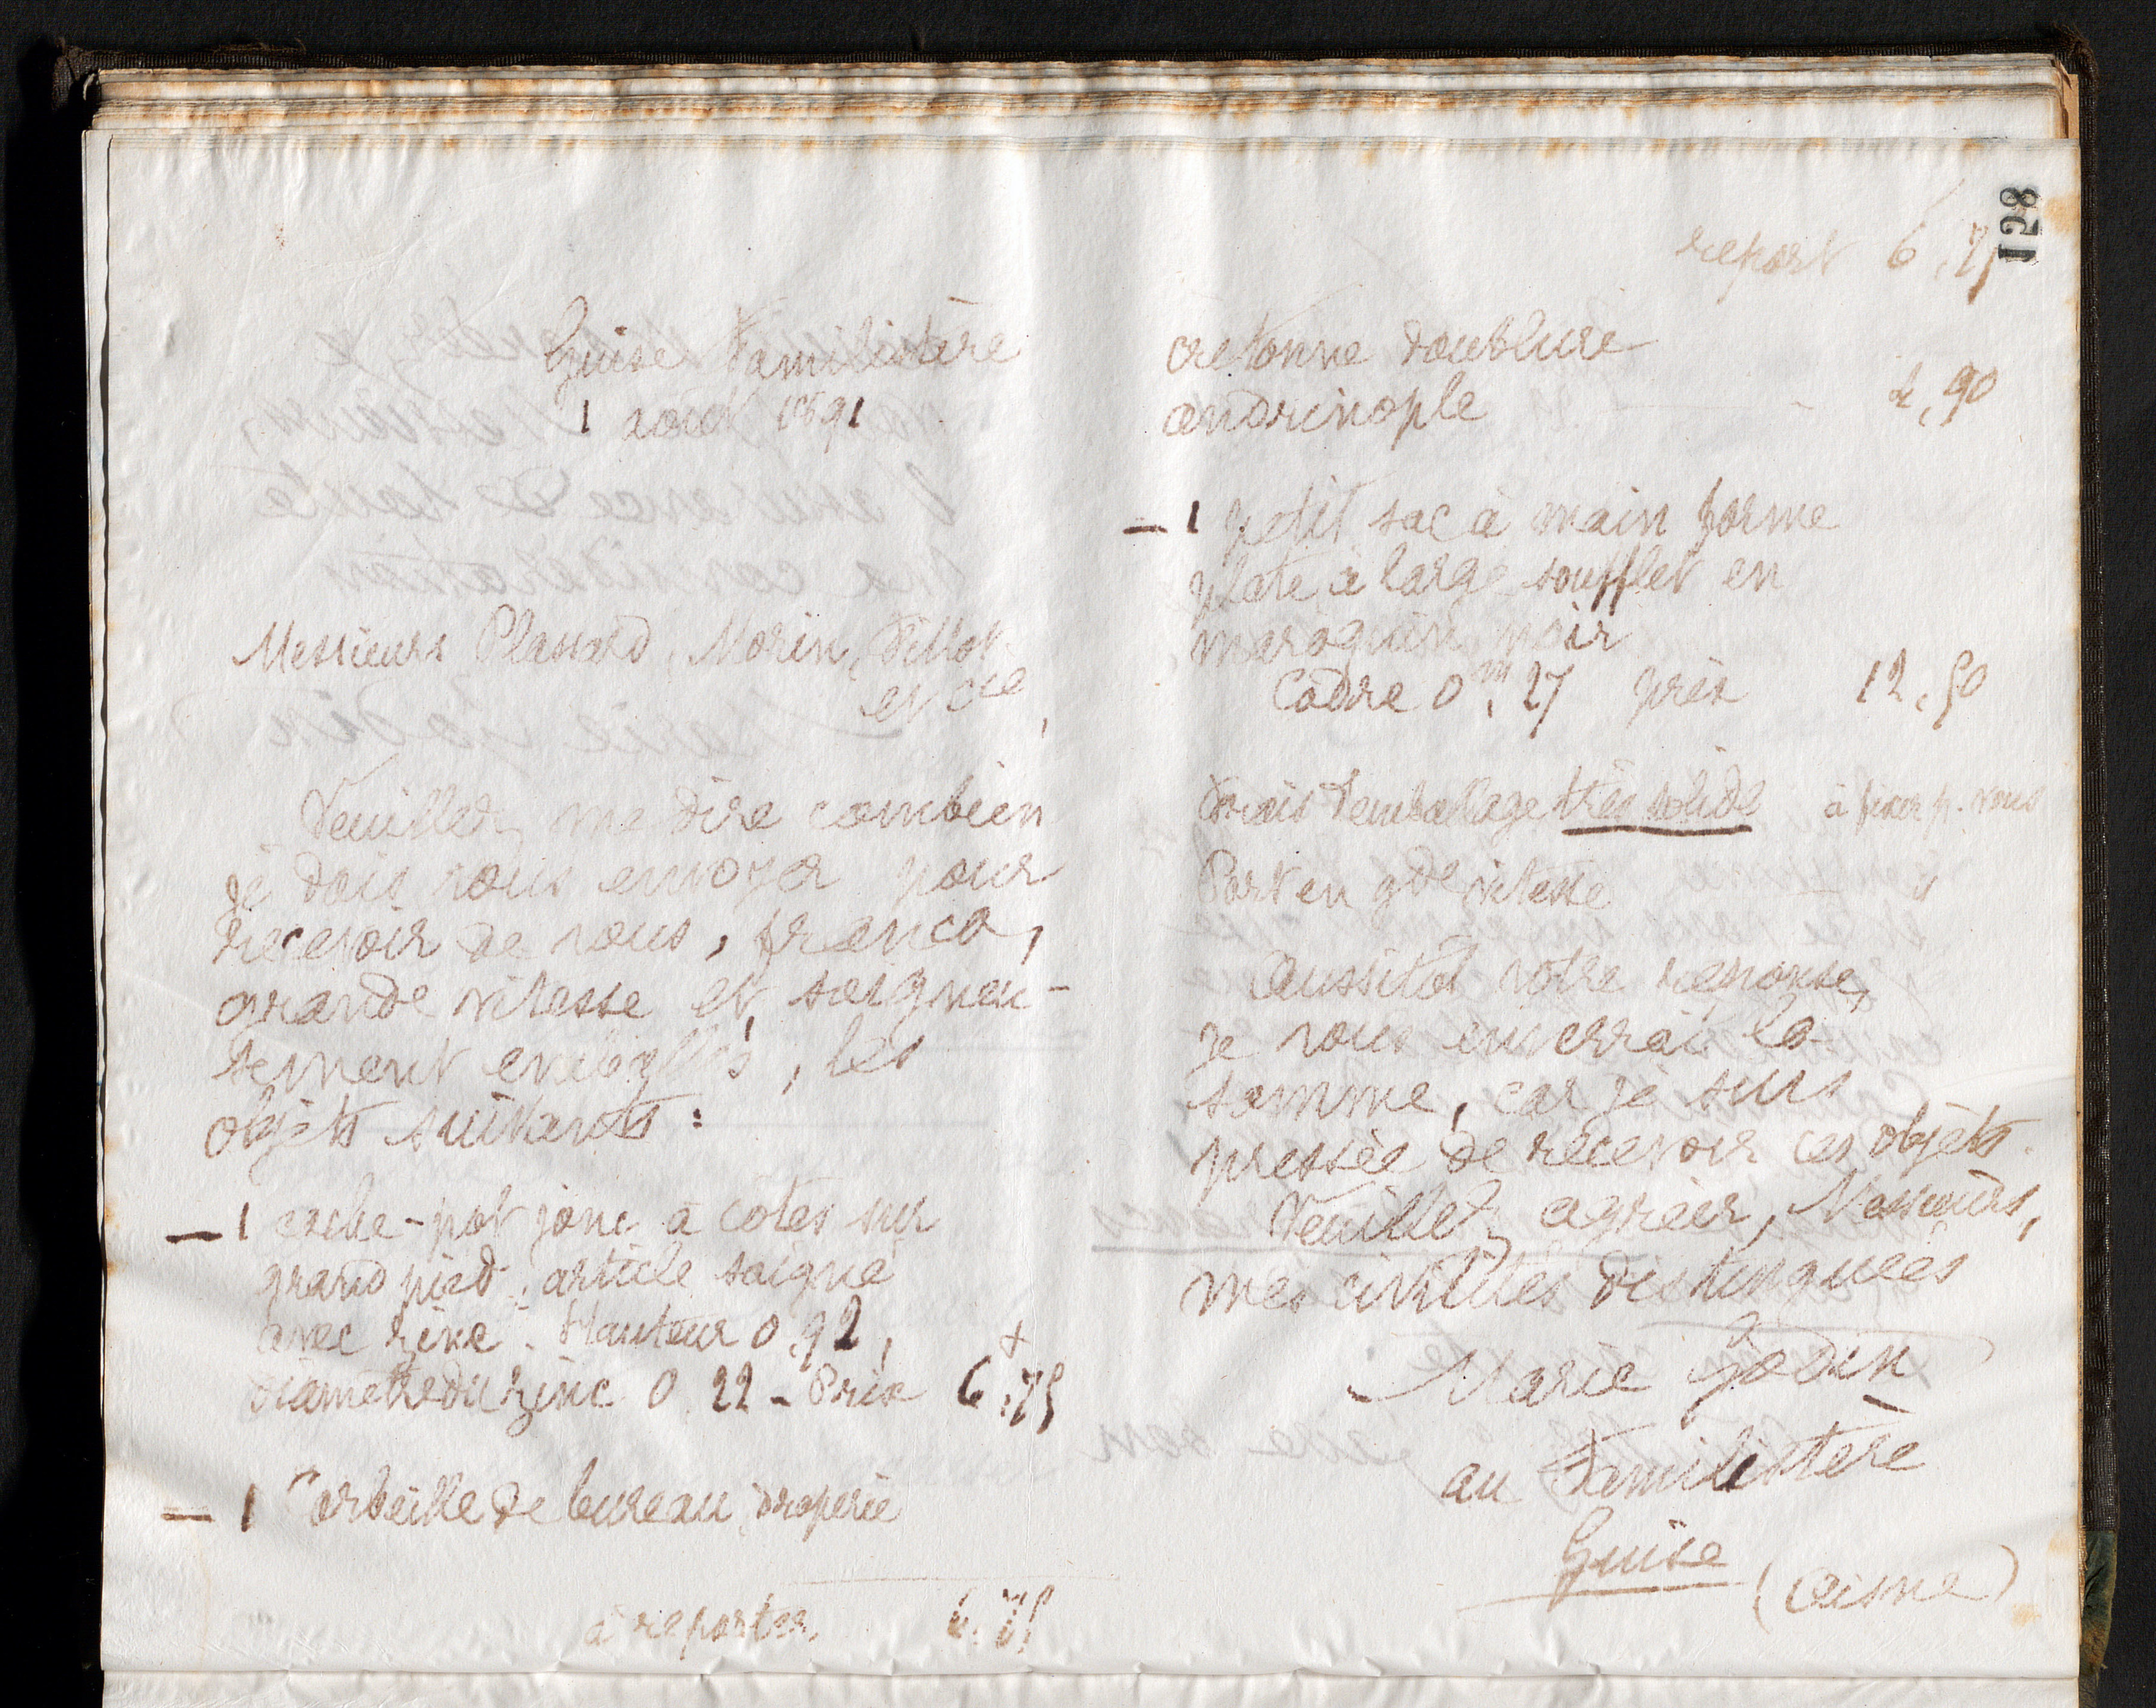 Guise Familistère
1 août 1891
Messieurs Plassard, Morin, Fillot
et Cie,
Veuillez me dire combien
je dois vous envoyer pour
recevoir de vous, franco,
grande vitesse et soigneu-
sement emballés, les
objets suivants :
— 1 cache-pot jonc à côtes sur
grand pied, article soigné
avec zinc. Hauteur 0,92,
diamètre du zinc 0,22 - Prix 6,75
— 1 Corbeille de bureau, draperie
à reporter 6.75
128
report 6,75
cretonne doublure
andrinople - 4,90
— 1 petit sac à main forme
plate à large soufflet en
maroquin noir
Cadre 0m,27 prix 12,50
Frais d'emballage très solide à fixer p. vous
Port en gde vitesse
Aussitôt votre réponse,
je vous enverrai la
somme, car je suis
pressée de recevoir ces objets.
Veuillez agréer, Messieurs,
mes civilités distinguées
Marie Godin
au Familistère
Guise (Aisne)